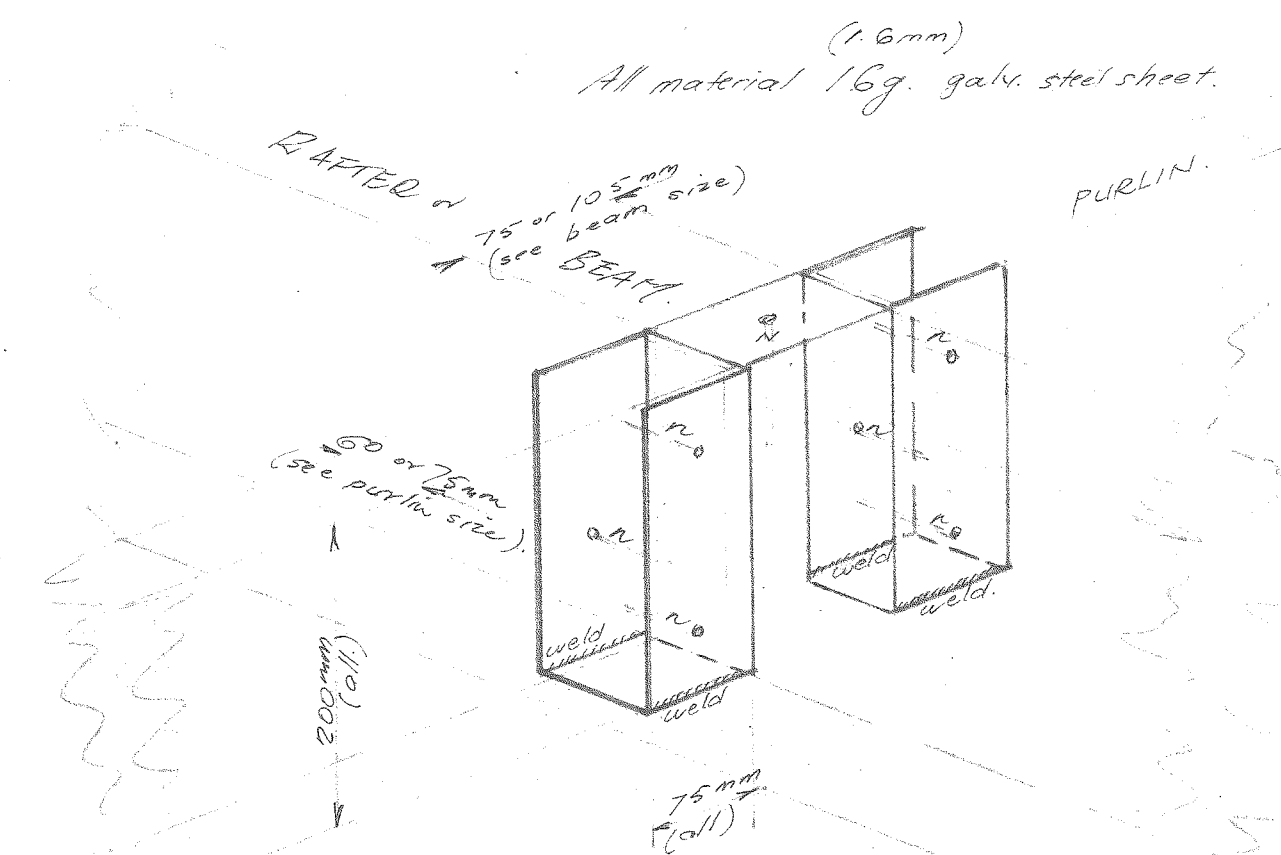 (1.6mm)
All material 16g. galv. steel sheet.
RAFTER or
BEAM.
75 or 105mm
(see beam size)
PURLIN.
n
n
n
n
n
n
n
50 or 75mm
(see purlin size).
200mm
(all)
weld
weld
weld
weld.
75mm
(all)